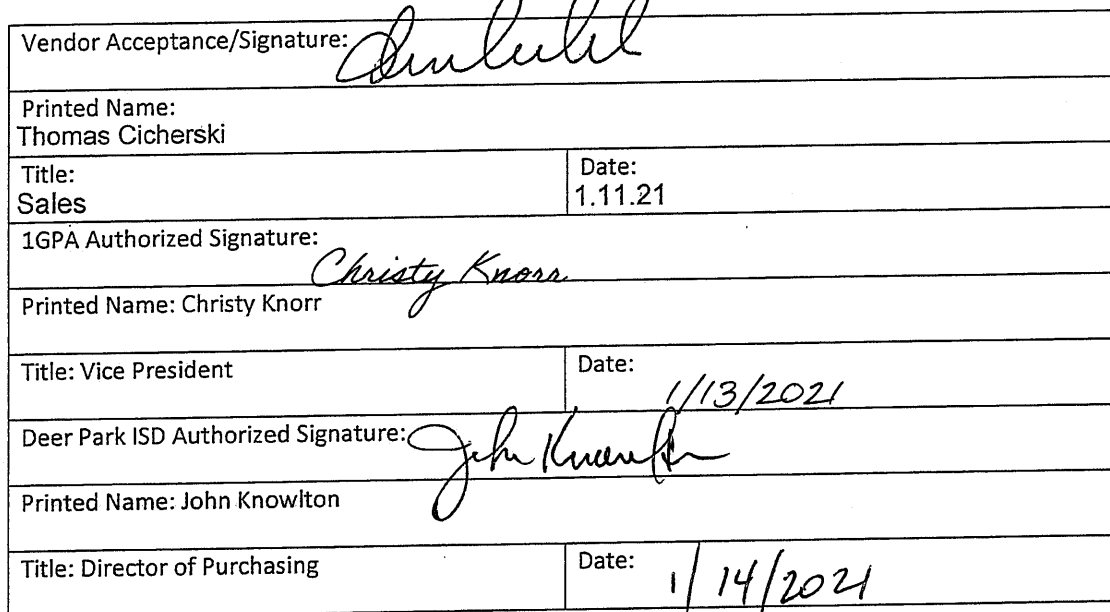 Vendor Acceptance/Signature:
Printed Name:
Thomas Cicherski
Title:
Sales
Date:
1.11.21
1GPA Authorized Signature:
Christy Knorr
Printed Name: Christy Knorr
Title: Vice President
Date:
1/13/2021
Deer Park ISD Authorized Signature: John Knowlton
Printed Name: John Knowlton
Title: Director of Purchasing
Date: 1/14/2021